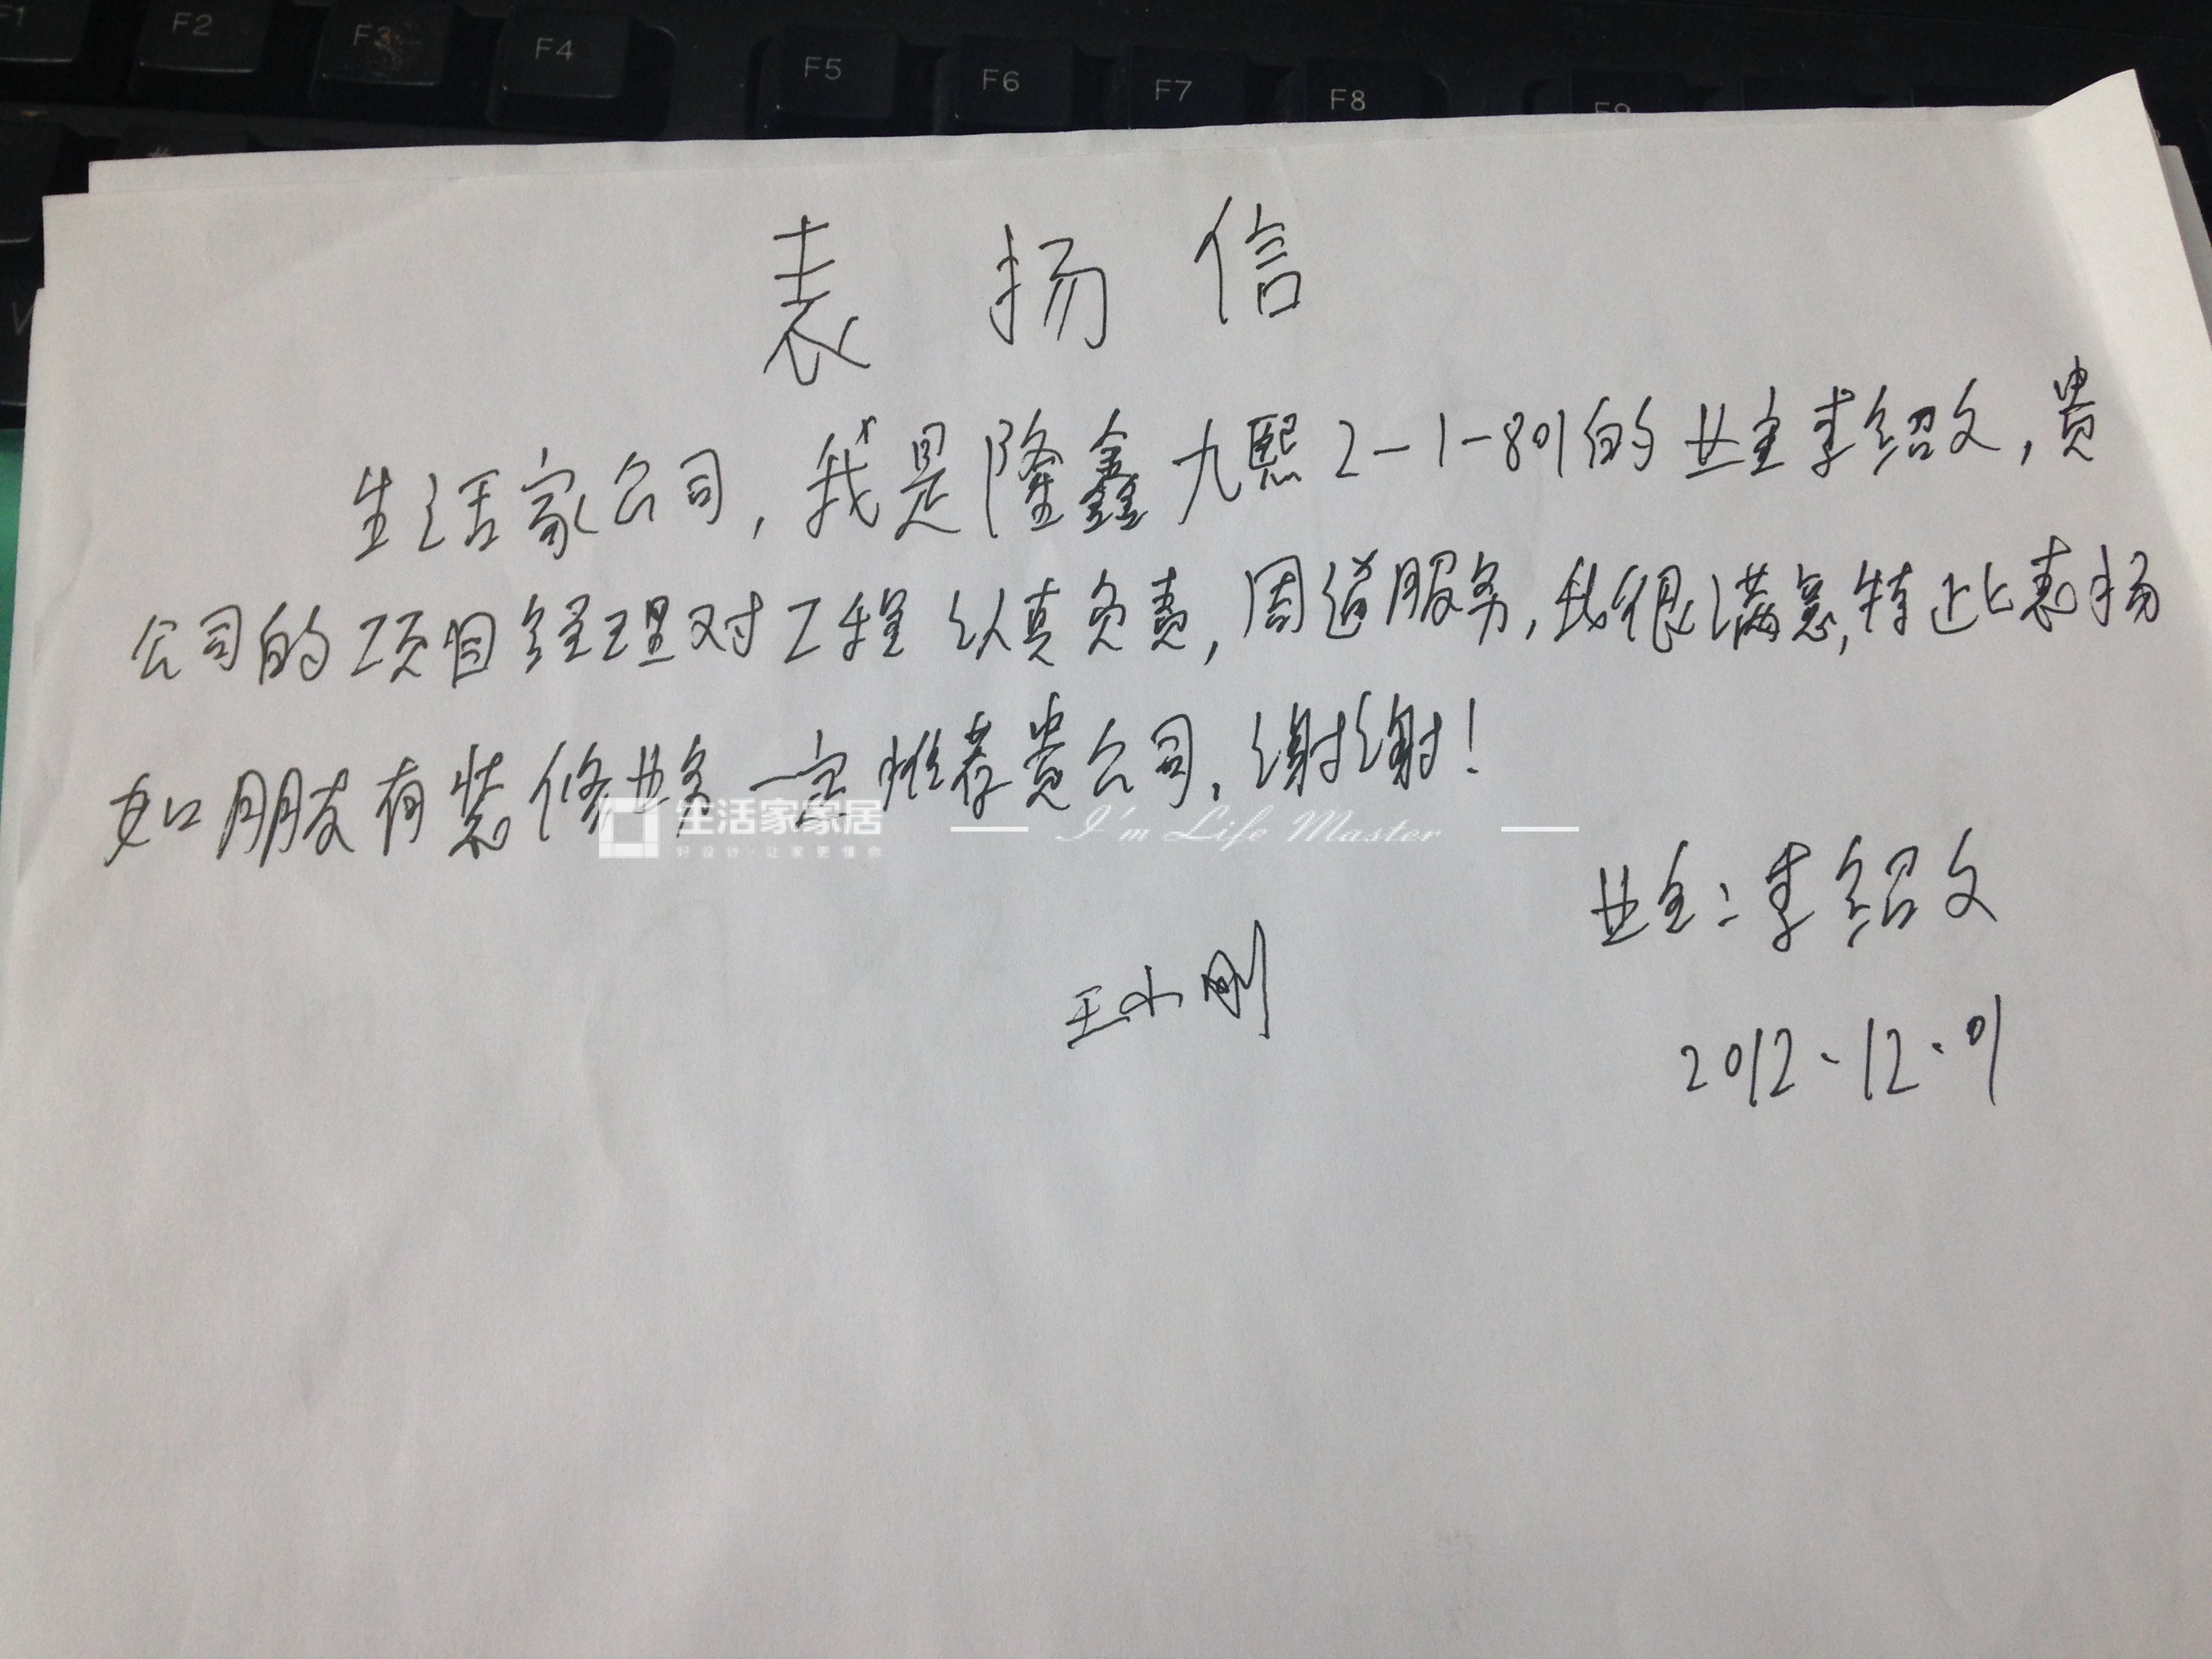 F1 F2 F3 F4 F5 F6 F7 F8 F9
表扬信
生活家公司,我是隆鑫九熙2-1-801的业主李绍文,贵
公司的项目经理对工程认真负责,周道服务,我很满意,特此表扬
如朋友有装修业务一定推荐贵公司,谢谢!
生活家家居
好设计·让家更懂你
I'm Life Master
业主:李绍文
王小刚
2012.12.01